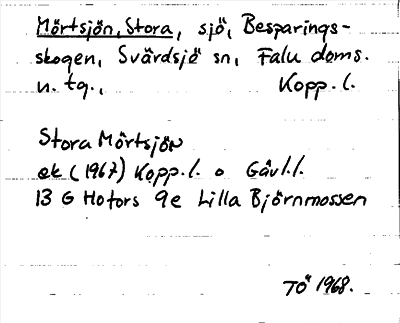 Mörtsjön, Stora, sjö, Besparings-
skogen, Svärdsjö sn, Falu doms.
n. tg., Kopp. l.
Stora Mörtsjön
ek (1967) Kopp. l. o Gävl. l.
13 G Hofors 9e Lilla Björnmossen
TÖ 1968.